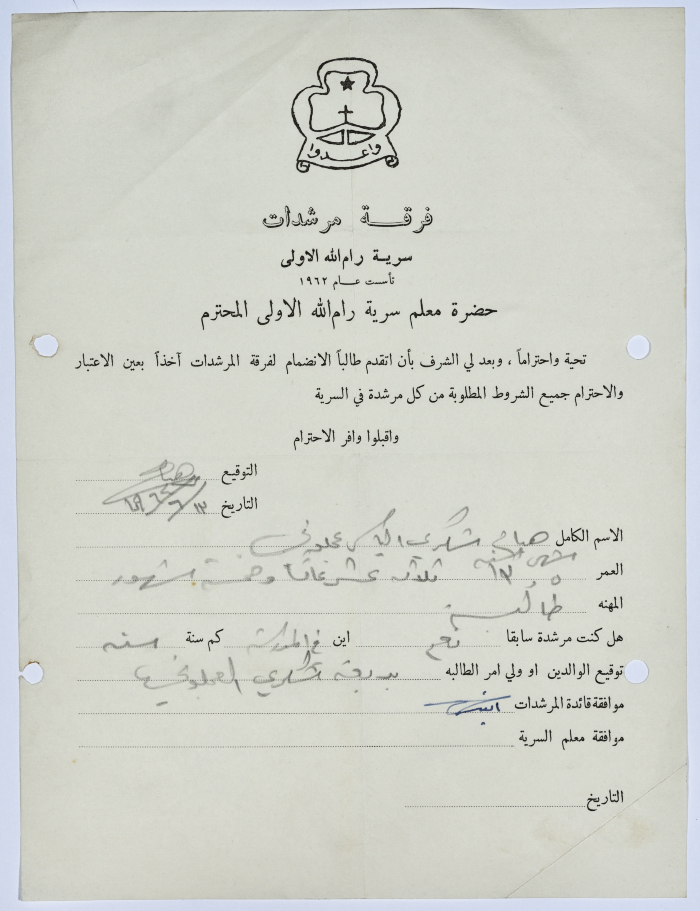 واعدوا
فرقة مرشدات
سرية رام الله الاولى
تأست عام ١٩٦٢
حضرة معلم سرية رام الله الاولى المحترم
تحية واحتراماً ، وبعد لي الشرف بأن اتقدم طالباً الانضمام لفرقة المرشدات آخذاً بعين الاعتبار
والاحترام جميع الشروط المطلوبة من كل مرشدة في السرية
واقبلوا وافر الاحترام
التوقيع هيام
التاريخ ١٣/٦/
الاسم الكامل هيام شكري الياس
العمر ٥ و ١٣ ثلاثة عشر عاما وخمسة شهور
المهنه طالبة
هل كنت مرشدة سابقا نعم اين في المدرسة كم سنة سنه
توقيع الوالدين او ولي امر الطالبه شكري
موافقة قائدة المرشدات
موافقة معلم السرية
التاريخ